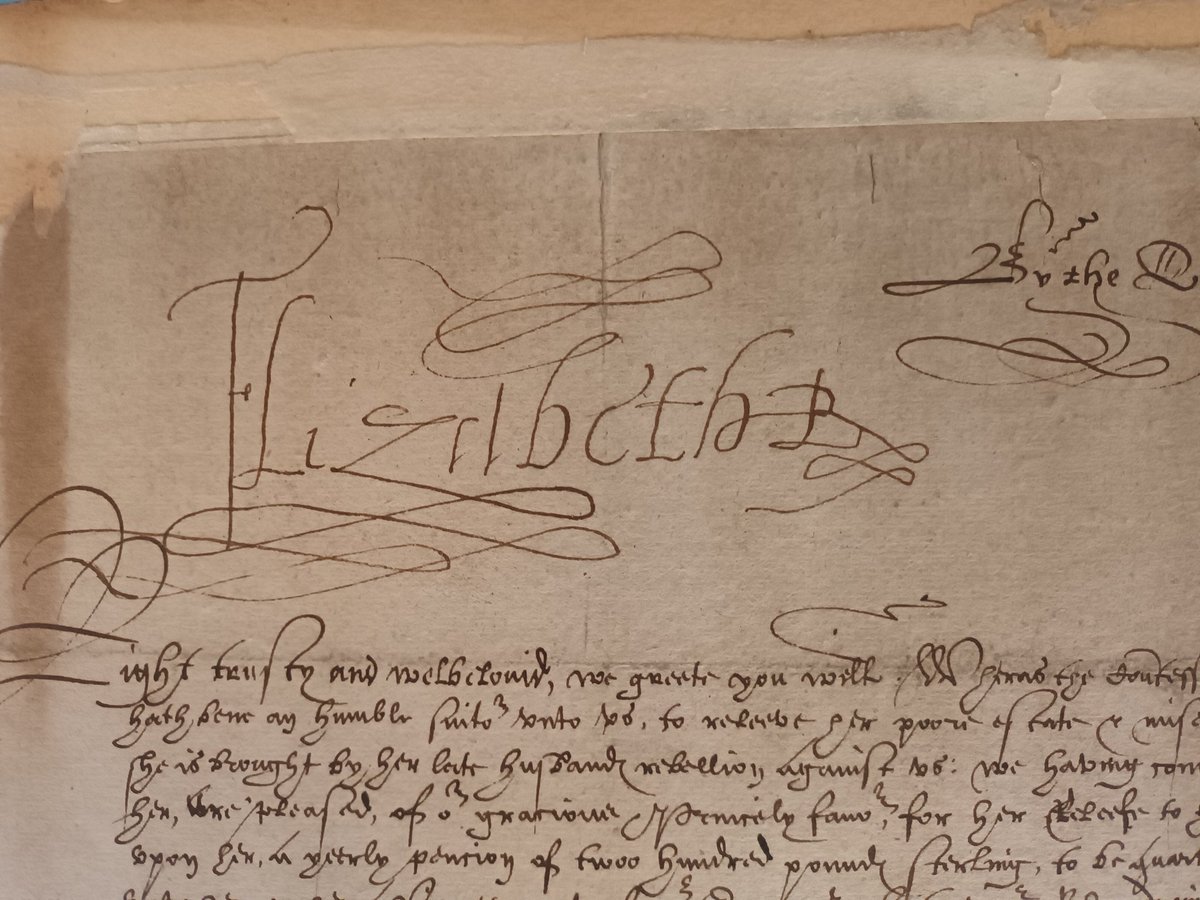 Elizabeth R
By the Q
Right trusty and welbelovid, we greete you well. Wheras the Countess
hath bene an humble suitor vnto vs, to releeve her poore estate & mise
she is brought by her late husbands rebellion against vs: we having con
her, are pleased, of or gracious Princely favor, for her Releefe to
vpon her, a yeerly pencion of twoo hundred pounds sterling, to be quart